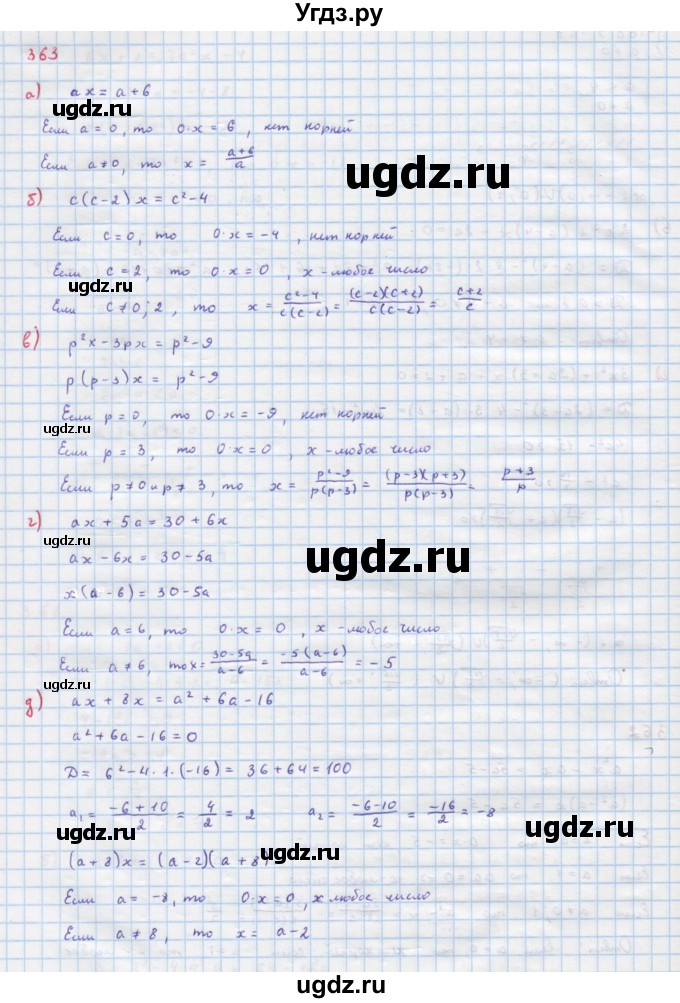 Угдз.ру
363
а) ax = a + 6
ugdz.ru
Если a = 0, то 0·x = 6, нет корней
Если a ≠ 0, то x = (a+6)/a
ugdz.ru
ugdz.ru
б) c(c-2)x = c² - 4
Если c = 0, то 0·x = -4, нет корней
Если c = 2, то 0·x = 0, x - любое число
ugdz.ru
Если c ≠ 0; 2, то x = (c²-4)/(c(c-2)) = ((c-2)(c+2))/(c(c-2)) = (c+2)/c
в) p²x - 3px = p² - 9
p(p-3)x = p² - 9
Если p = 0, то 0·x = -9, нет корней
ugdz.ru
Если p = 3, то 0·x = 0, x - любое число
Если p ≠ 0 и p ≠ 3, то x = (p²-9)/(p(p-3)) = ((p-3)(p+3))/(p(p-3)) = (p+3)/p
г) ax + 5a = 30 + 6x
ugdz.ru
ax - 6x = 30 - 5a
ugdz.ru
x(a-6) = 30 - 5a
Если a = 6, то 0·x = 0, x - любое число
Если a ≠ 6, то x = (30-5a)/(a-6) = (-5(a-6))/(a-6) = -5
ugdz.ru
д) ax + 8x = a² + 6a - 16
a² + 6a - 16 = 0
D = 6² - 4·1·(-16) = 36 + 64 = 100
a₁ = (-6+10)/2 = 4/2 = 2 a₂ = (-6-10)/2 = -16/2 = -8
ugdz.ru
ugdz.ru
(a+8)x = (a-2)(a+8)
ugdz.ru
Если a = -8, то 0·x = 0, x любое число
Если a ≠ 8, то x = a-2
ugdz.ru
ugdz.ru